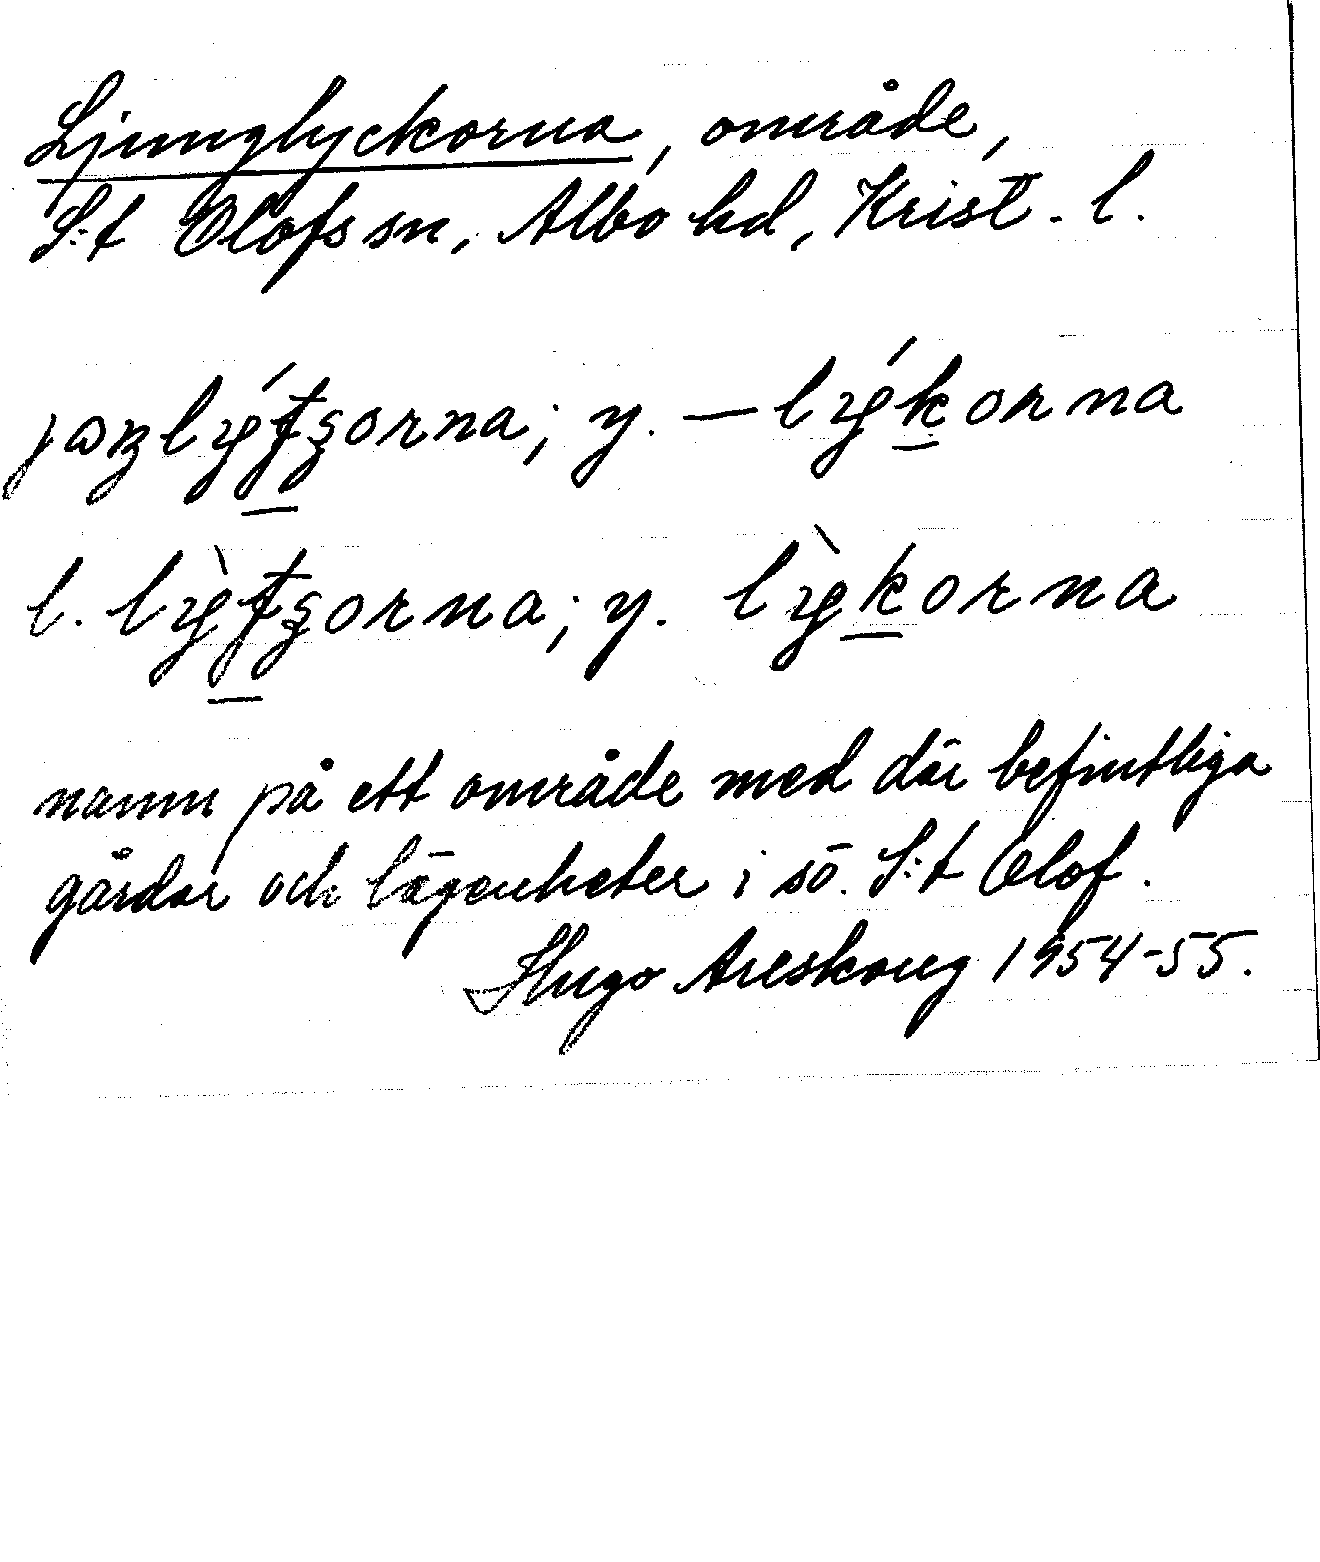 Ljunglyckorna, område,
S:t Olofs sn, Albo hd, Krist. l.
y. — lýkorna
l. y. lỳkorna
namn på ett område med där befintliga
gårdar och lägenheter i sö. S:t Olof.
Hugo Areskoug 1954-55.